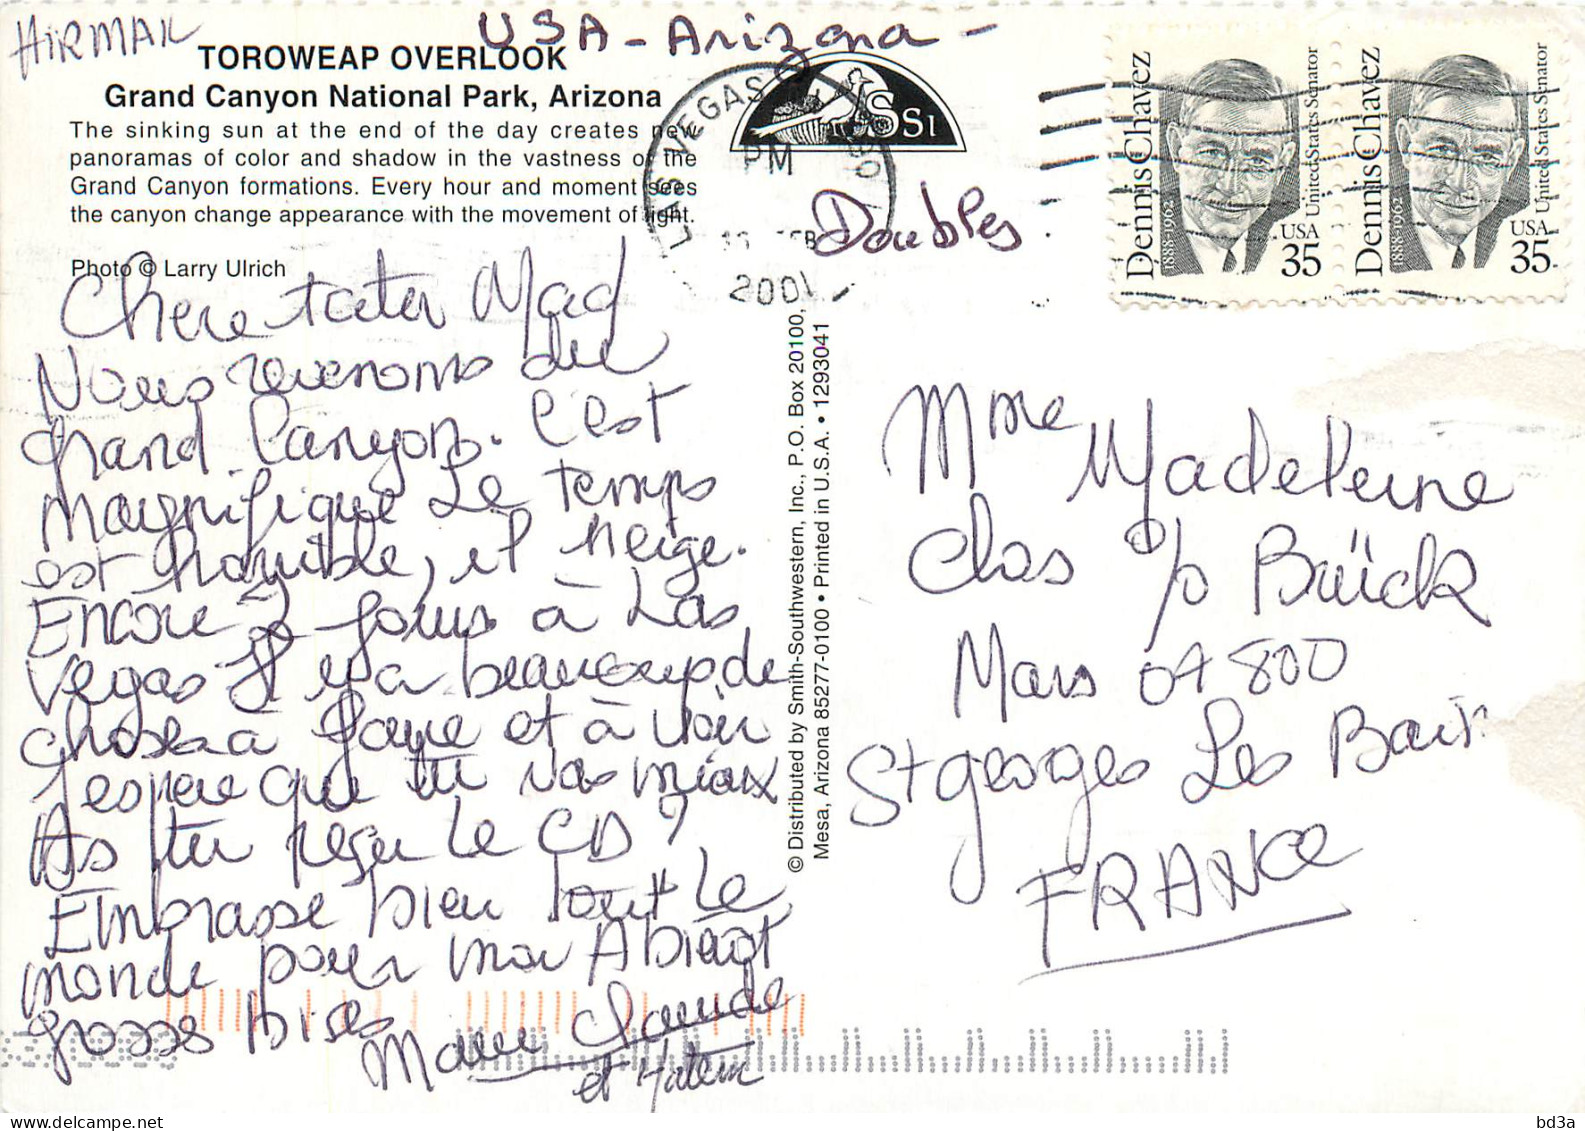 AIRMAIL
USA - Arizona -
TOROWEAP OVERLOOK
Grand Canyon National Park, Arizona
The sinking sun at the end of the day creates new
panoramas of color and shadow in the vastness of the
Grand Canyon formations. Every hour and moment sees
the canyon change appearance with the movement of light.
Photo © Larry Ulrich
LAS VEGAS
PM
FEB
2001
SSI
Doubles
Dennis Chavez
1888-1962
United States Senator
USA
35
Dennis Chavez
1888-1962
United States Senator
USA
35
Chere tata Mad
Nous revenons du
grand Canyon. C'est
magnifique Le temps
est horrible, il neige.
Encore 2 jours à Las
Vegas Il y a beaucoup de
choses à faire et à voir
J'espere que tu vas mieux
As tu reçu le CD?
Embrasse bien tout le
monde pour moi A bientot
grosses bises
Marie Claude
et Hatem
© Distributed by Smith-Southwestern, Inc., P.O. Box 20100,
Mesa, Arizona 85277-0100 • Printed in U.S.A. • 1293041
Mme Madeleine
Clos %
Mars 07800
St georges Les Bains
FRANCE
bd3a